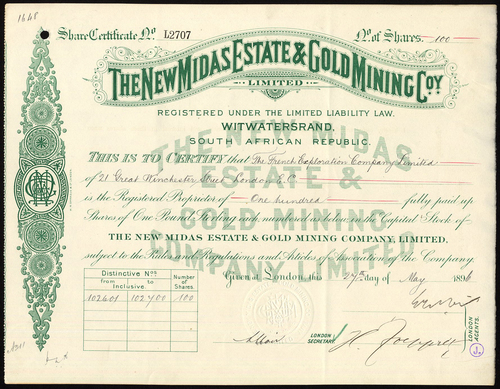 1668
Share Certificate No. L2707
No. of Shares. 100
THE NEW MIDAS ESTATE & GOLD MINING COY.
LIMITED
REGISTERED UNDER THE LIMITED LIABILITY LAW.
WITWATERSRAND,
SOUTH AFRICAN REPUBLIC.
THIS IS TO CERTIFY that The French Exploration Company Limited
of 21 Great Winchester Street London E.C.
is the Registered Proprietor of One hundred fully paid up
Shares of One Pound Sterling each numbered as below in the Capital Stock of
THE NEW MIDAS ESTATE & GOLD MINING COMPANY, LIMITED.
subject to the Rules and Regulations and Articles of Association of the Company
THE NEW MIDAS
ESTATE &
GOLD MINING
COMPANY LIMITED
Given at London this 27th day of May 1896
Distinctive Nos. Number of Shares.
from Inclusive to
102601 102700 100
LONDON SECRETARY
LONDON AGENTS.